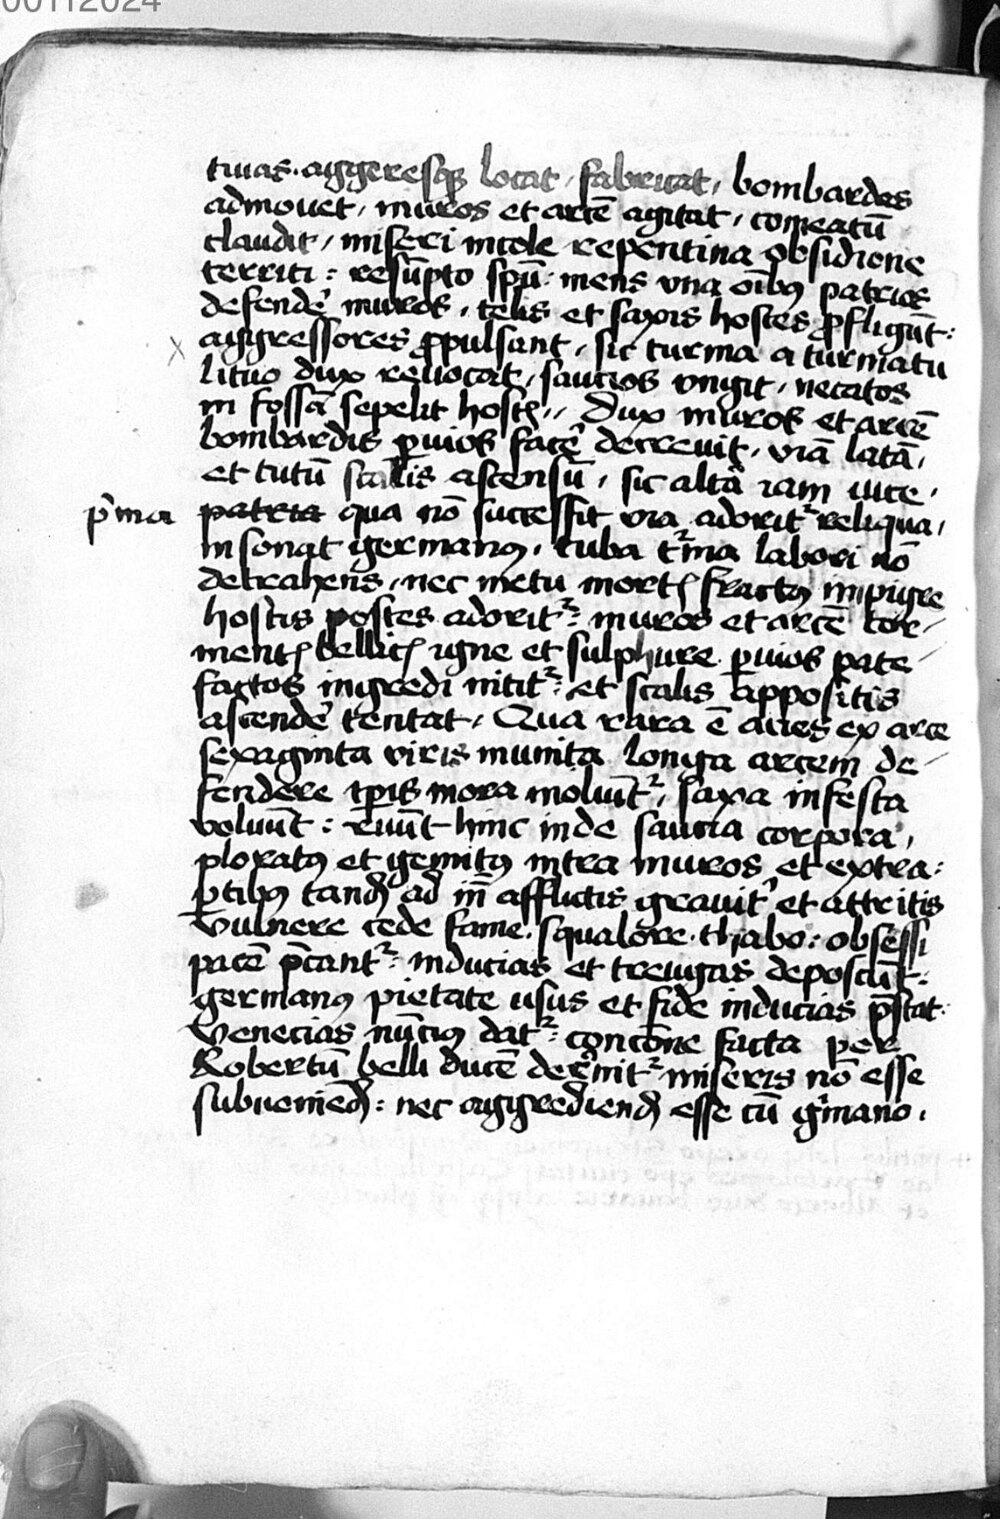 00112024
tiuas. aggeresq; locat, fabricat, bombardas
admouet, muros et arcē agitat, comeatū
claudit, miseri incole repentina obsidione
territi: resūpto spū: mens vna oībꝫ patrios
defendē muros, telis et saxis hostes ꝓfligūt:
aggressores ꝓpulsant, sic turma a turmatu
lituo dux reuocat, saucios vngit, necatos
in fossā sepelit hostꝭ, Dux muros et arcē
bombardis ꝑuios facē decreuit, viā latā,
et tutū scalis ascensū, sic altā iam luce,
p̄ma patris qua nō successit via adorit᷑ reliqua,
Insonat germanꝰ, tuba t᷑ma labori nō
detrahens, nec metu mortꝭ fractꝰ impigre
hostis postes adorit᷑: muros et arcē tor-
mentꝭ bellicꝭ igne et sulphure ꝑuios pate-
factos ingredi nitit᷑: et scalis appositis
ascendē tentat, Qua rara ē acies ex arce
sexaginta viris munita longa arcem de-
fendere tꝑis mora moliūt᷑, saxa infesta
voluūt: ruūt hinc inde saucia corpora,
ploratꝰ et gemitꝰ intra muros et extra:
ꝑtibꝰ tandꝫ ad īn afflictis grauit᷑ et attritis
Vulnere cede fame. squalore. thabo: obsessi
pacē p̄cant᷑: inducias et treugas deposcūt:
germanꝰ pietate usus et fide inducias p̄stat.
Venecias nūciꝰ dat᷑: concōne facta per
Robertū belli ducē decernit᷑ miseris nō esse
subueniēdꝫ: nec aggrediendꝫ esse cū g᷑mano.